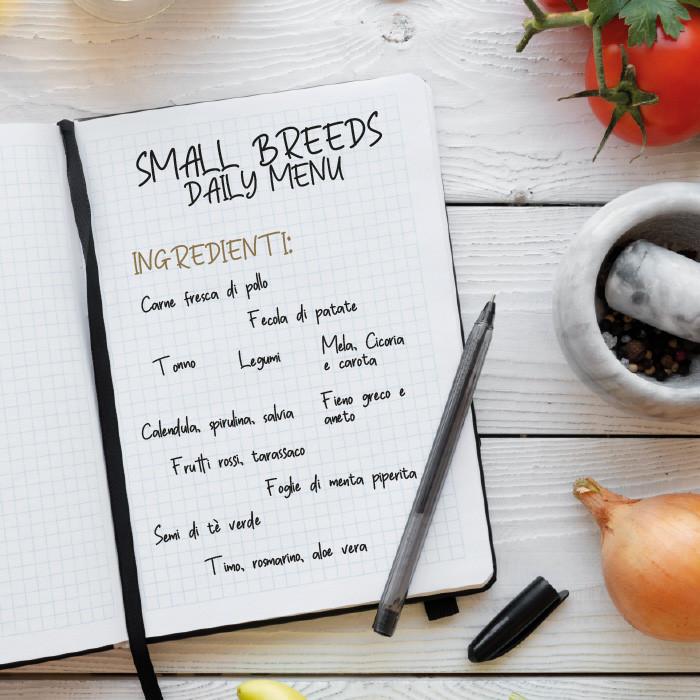 SMALL BREEDS
DAILY MENU
INGREDIENTI:
Carne fresca di pollo
Fecola di patate
Tonno
Legumi
Mela, Cicoria
e carota
Calendula, spirulina, salvia
Fieno greco e
aneto
Frutti rossi, tarassaco
Foglie di menta piperita
Semi di tè verde
Timo, rosmarino, aloe vera